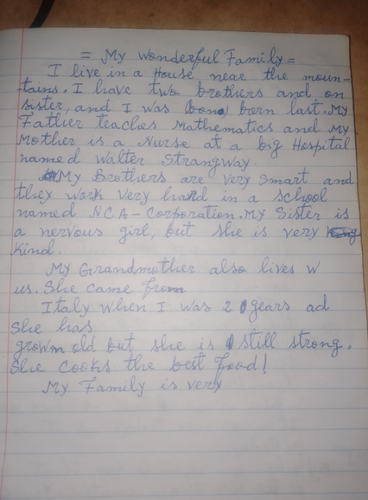 = My Wonderful Family =
I live in a House near the moun-
tains. I have two brothers and on
sister, and I was born last. My
Father teaches Mathematics and My
Mother is a Nurse at a big Hospital
named Walter Strangway.
My Brothers are very smart and
they work very hard in a school
named NCA-Corporation. My Sister is
a nervous girl, but she is very
Kind.
My Grandmother also lives w
us. She came from
Italy when I was 2 years ad
She has
grown old but she is still strong.
She cooks the best food!
My Family is very